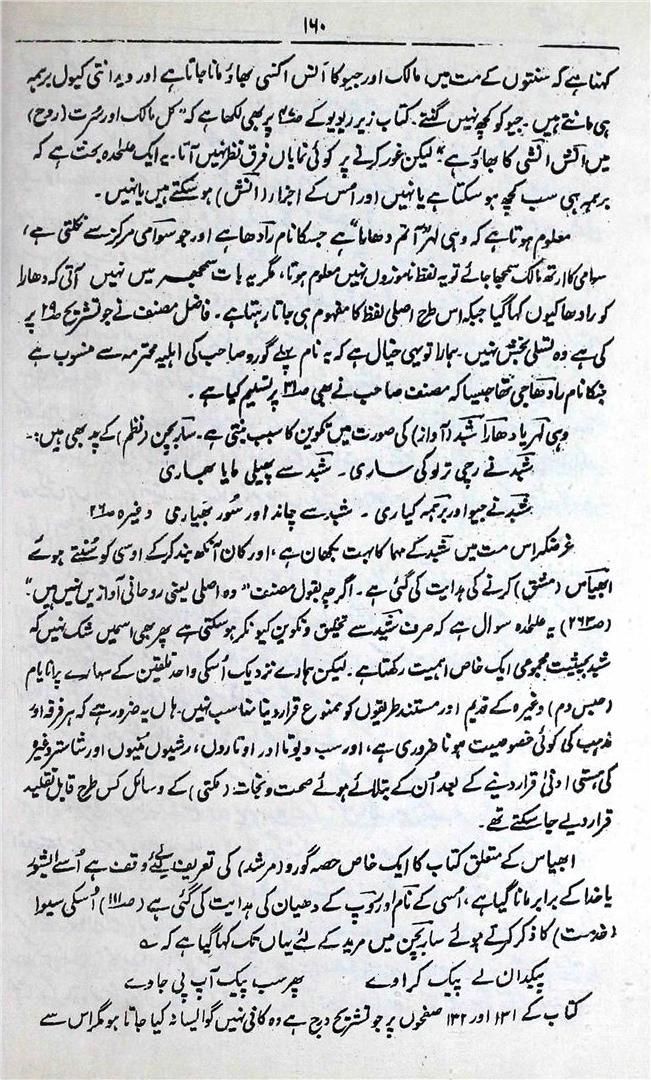 ۱۶۰
کہنا ہے کہ سنتوں کے مت میں مالک اور جیو کا آنس انسی بھاؤ مانا جاتا ہے اور ویدانتی کیول برہمہ
ہی مانتے ہیں۔ جیو کو کچھ نہیں گنتے۔ کتاب زیر ریویو کے پر بھی لکھا ہے کہ "کل مالک اور سُرت (روح)
میں انش انشی کا بھاؤ ہے" لیکن غور کرنے پر کوئی نمایاں فرق نظر نہیں آتا۔ یہ ایک علحدہ بحث ہے کہ
برہمہ ہی سب کچھ ہو سکتا ہے یا نہیں اور اُس کے اجزاء (انش) ہو سکتے ہیں یا نہیں۔
معلوم ہوتا ہے کہ وہی لہر "آتم دھارا" ہے جسکا نام رادھا ہے اور جو سوامی مرکز سے نکلتی ہے،
سوامی کا ارتھ مالک سمجھا جائے تو یہ لفظ ناموزوں نہیں معلوم ہوتا، مگر یہ بات سمجھ میں نہیں آتی کہ دھارا
کو رادھا کیوں کہا گیا جبکہ اس طرح اصلی لفظ کا مفہوم ہی جاتا رہتا ہے۔ فاضل مصنف نے جو تشریح ص۲۹ پر
کی ہے وہ تسلی بخش نہیں۔ ہمارا تو یہی خیال ہے کہ یہ نام پہلے گورو صاحب کی اہلیہ محترمہ سے منسوب ہے
جنکا نام رادھا جی تھا جیسا کہ مصنف صاحب نے بھی ص۳۱ پر تسلیم کیا ہے۔
وہی لہر یا دھارا شبد (آواز) کی صورت میں تکوین کا سبب بنتی ہے۔ سار بچن (نظم) کے پد بھی ہیں:۔
شبد نے رچی ترلوکی ساری۔ شبد سے پھیلی مایا بھاری
شبد نے جیو اور برہمہ کیا ری۔ شبد سے چاند اور سُور بھیا ری وغیرہ ص۲۶
غرضکہ اس مت میں شبد کے مہما کا بہت بکھان ہے، اور کان آنکھ بند کر کے اوسی کو سُنتے ہوئے
ابھیاس (مشق) کرنے کی ہدایت کی گئی ہے۔ اگرچہ بقول مصنف "وہ اصلی یعنی روحانی آوازیں نہیں ہیں"
(ص۲۶۳) یہ علحدہ سوال ہے کہ صرف شبد سے تخلیق و تکوین کیونکر ہو سکتی ہے پھر بھی اسمیں شک نہیں کہ
شبد بحیثیت مجموعی ایک خاص اہمیت رکھتا ہے۔ لیکن ہمارے نزدیک اُسکی واحد تلقین کے سہارے پرانایام
(حبس دم) وغیرہ کے قدیم اور مستند طریقوں کو ممنوع قرار دینا مناسب نہیں۔ ہاں یہ ضرور ہے کہ ہر فرقہ اور
مذہب کی کوئی خصوصیت ہونا ضروری ہے، اور سب دیوتا اور اوتاروں، رشیوں مُنیوں اور شاستر وغیرہ
کی ہستی ادنیٰ قرار دینے کے بعد اُن کے بتلائے ہوئے صحت و نجات (مکتی) کے وسائل کس طرح قابل تقلید
قرار دیے جا سکتے تھے۔
ابھیاس کے متعلق کتاب کا ایک خاص حصہ گورو (مرشد) کی تعریف کیلئے وقف ہے اُسے ایشور
یا خدا کے برابر مانا گیا ہے، اُسی کے نام اور رُوپ کے دھیان کی ہدایت کی گئی ہے (ص۱۱۱) اُسکی سیوا
(خدمت) کا ذکر کرتے ہوئے سار بچن میں مرید کے لئے یہاں تک کہا گیا ہے کہ ؎
پیکدان لے پیک کراوے پھر سب پیک آپ پی جاوے
کتاب کے ۱۳۱ اور ۱۳۲ صفحوں پر جو تشریح درج ہے وہ کافی نہیں گو ایسا نہ کیا جاتا ہو مگر اس سے